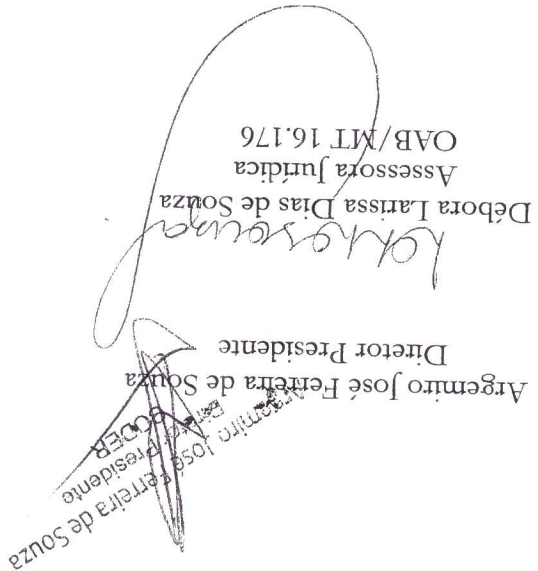 Argemiro José Ferreira de Souza
Diretor Presidente
Argemiro José Ferreira de Souza
Diretor Presidente
CODER
Débora Larissa Dias de Souza
Assessora Jurídica
OAB/MT 16.176